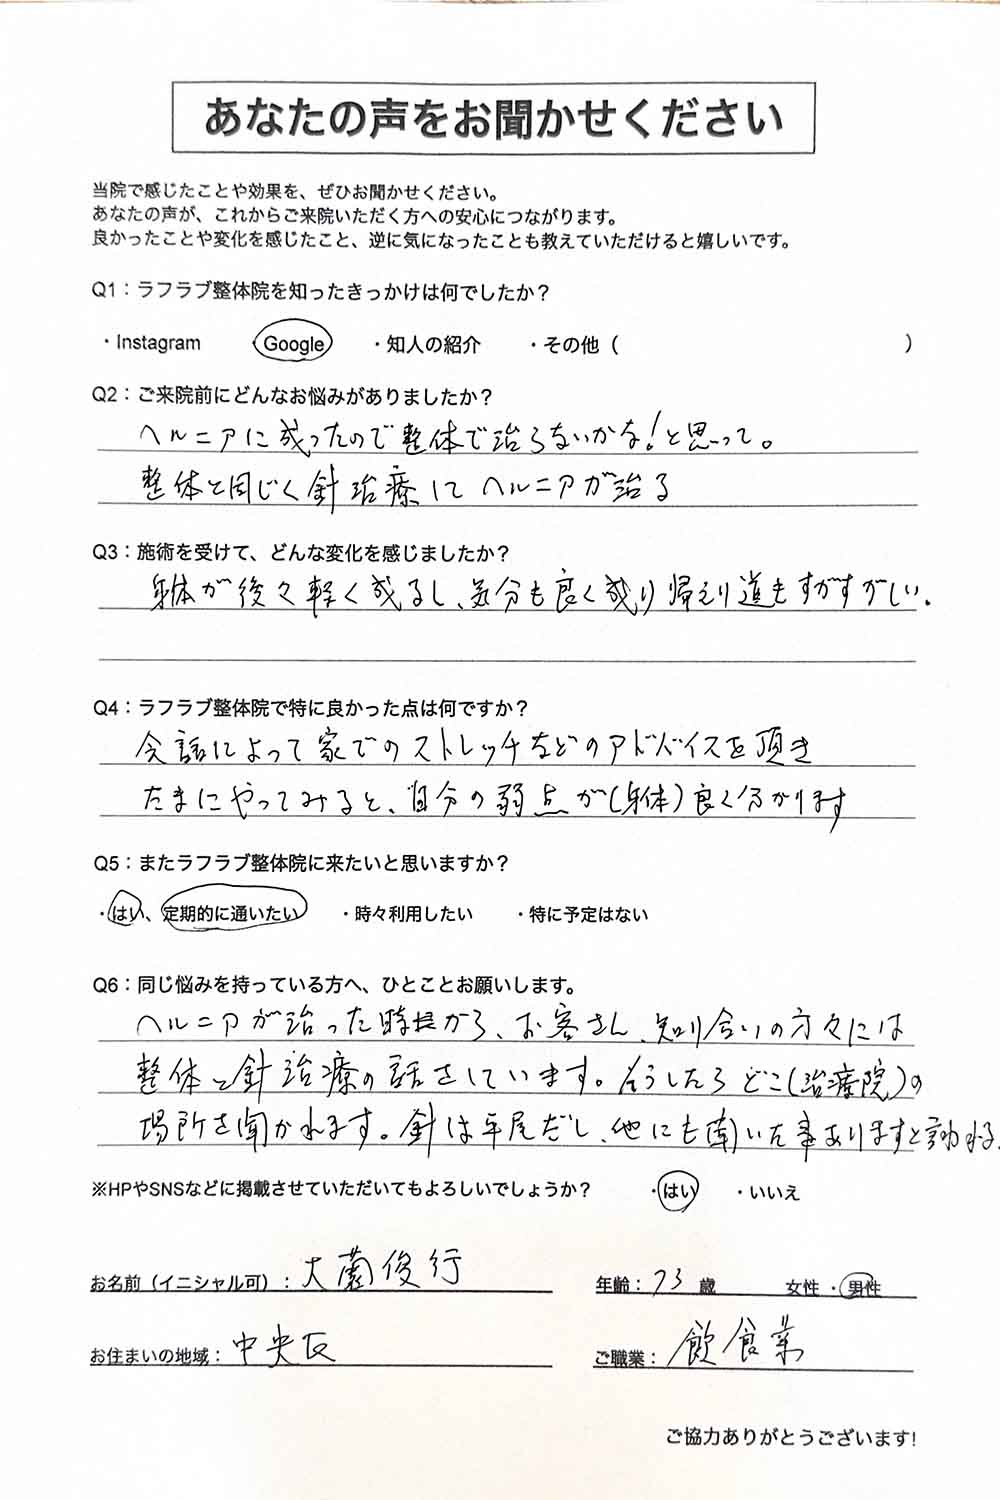 あなたの声をお聞かせください
当院で感じたことや効果を、ぜひお聞かせください。
あなたの声が、これからご来院いただく方への安心につながります。
良かったことや変化を感じたこと、逆に気になったことも教えていただけると嬉しいです。
Q1：ラフラブ整体院を知ったきっかけは何でしたか？
・Instagram ・Google ・知人の紹介 ・その他（ ）
Q2：ご来院前にどんなお悩みがありましたか？
ヘルニアに成ったので整体で治らないかな!と思って。
整体と同じく針治療にてヘルニアが治る
Q3：施術を受けて、どんな変化を感じましたか？
身体が後々軽く成るし、気分も良く成り帰えり道もすがすがしい.
Q4：ラフラブ整体院で特に良かった点は何ですか？
会話によって家でのストレッチなどのアドバイスを頂き
たまにやってみると、自分の弱点が(身体)良く分かります
Q5：またラフラブ整体院に来たいと思いますか？
・はい、定期的に通いたい ・時々利用したい ・特に予定はない
Q6：同じ悩みを持っている方へ、ひとことお願いします。
ヘルニアが治った時から、お客さん、知り合いの方々には
整体と針治療の話をしています。そうしたらどこ(治療院)の
場所を聞かれます。針は平尾だし、他にも聞いた事ありますと言われる、
※HPやSNSなどに掲載させていただいてもよろしいでしょうか？ ・はい ・いいえ
お名前（イニシャル可）：大薗俊行 年齢：73歳 女性・男性
お住まいの地域：中央区 ご職業：飲食業
ご協力ありがとうございます!